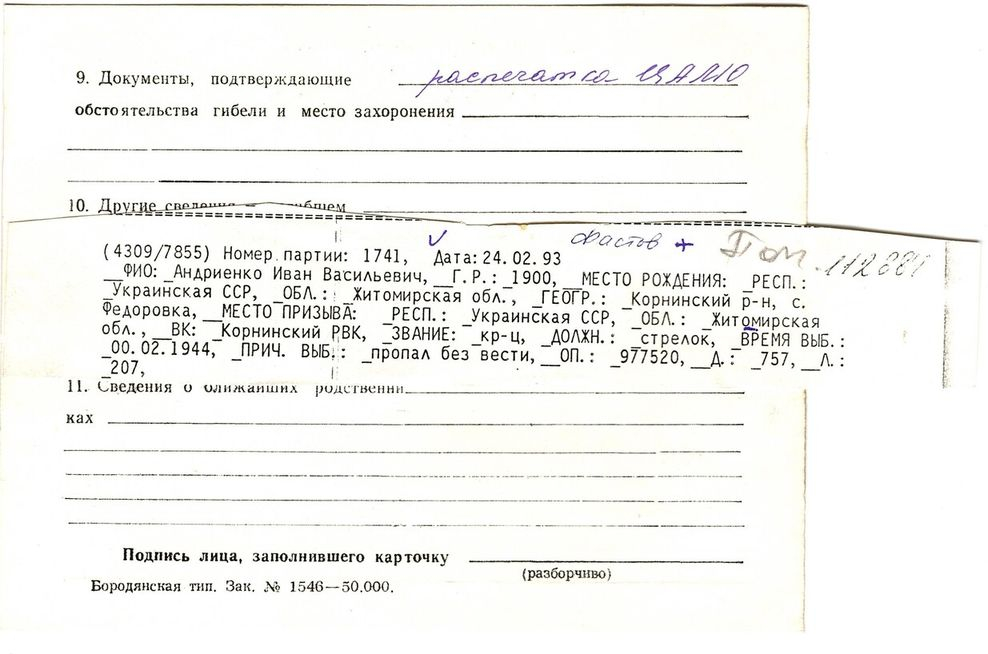 9. Документы, подтверждающие распечатка ЦАМО
обстоятельства гибели и место захоронения
10. Другие сведения
Фастов +
(4309/7855) Номер партии: 1741, Дата: 24.02.93
__ФИО:_Андриенко Иван Васильевич,__Г.Р.:_1900,__МЕСТО РОЖДЕНИЯ: _РЕСП.:
_Украинская ССР, _ОБЛ.: _Житомирская обл., _ГЕОГР.: _Корнинский р-н, с.
Федоровка,__МЕСТО ПРИЗЫВА: _РЕСП.: _Украинская ССР, _ОБЛ.: _Житомирская
обл.,__ВК: _Корнинский РВК, _ЗВАНИЕ: _кр-ц, _ДОЛЖН.: _стрелок, _ВРЕМЯ ВЫБ.:
_00.02.1944, _ПРИЧ. ВЫБ.: _пропал без вести,__ОП.: _977520,__Д.: _757,__Л.:
_207,
11. Сведения о ближайших родственни
ках
Подпись лица, заполнившего карточку
(разборчиво)
Бородянская тип. Зак. № 1546—50.000.